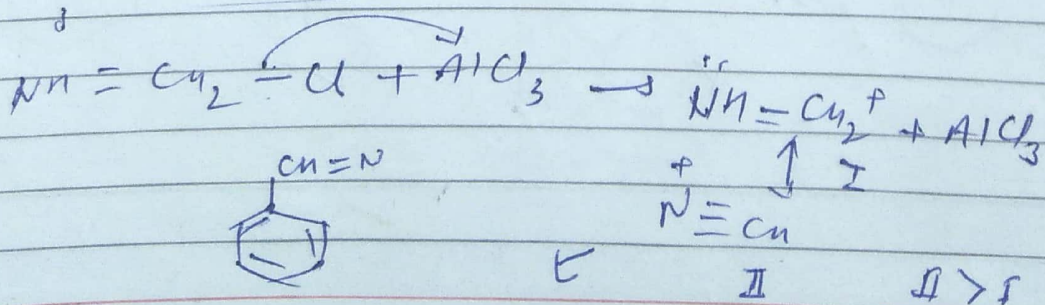 NH = CH2 - Cl + AlCl3 → N̈H = CH2+ + AlCl3
CH = N
↕ I
+
N ≡ CH
II II > I